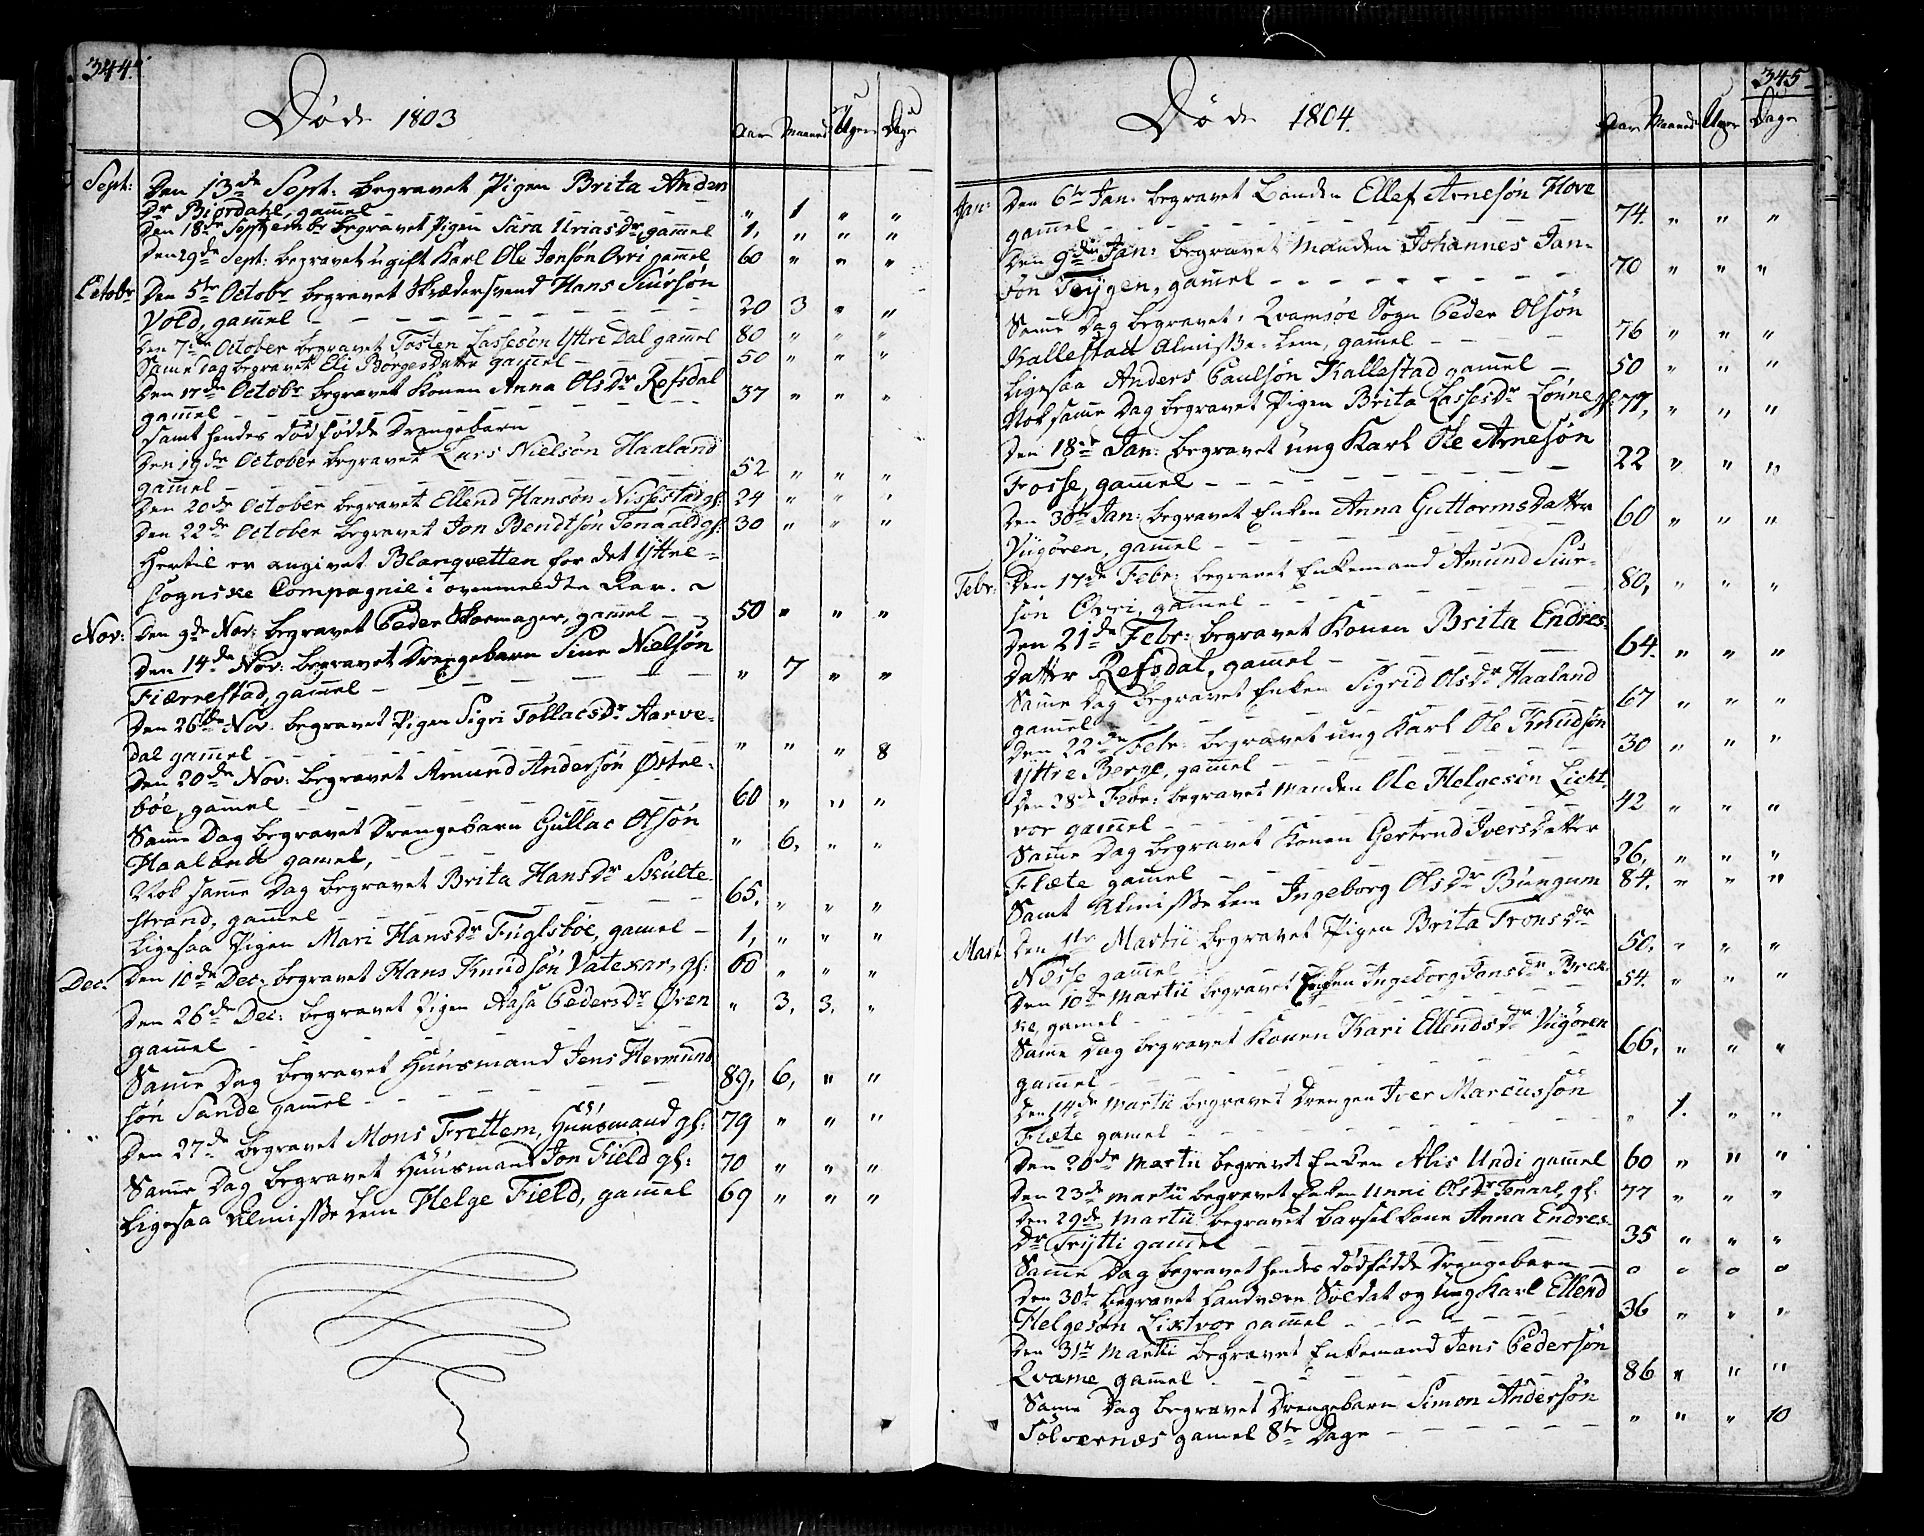 344.
Døde 1803
Aar Maaned Uger Dage
Sept: Den 13de Sept: begravet Pigen Brita Anders
Dr Biørdahl, gamel - - - " 1 " "
Den 18de Septembr begravet Pigen Sara Uriasdr gamel 1, " " "
Den 29de Sept: begravet ugift Karl Ole Jonsøn Ovri gamel 60 " " "
Octobr Den 5te Octobr begravet Skrædersvend Hans Siursøn
Vold, gamel - - - 20 3 " "
Den 7de October begravet Tosten Lassesøn Yttre Dal gamel 80 " " "
Same dag begravet Eli Borgesdatter gamel - - 50 " " "
Den 17de Octobr begravet Konen Anna Olsdr Refsdal
gamel - - - 37 " " "
samt hendes dødfødde Drengebarn
Den 19de October begravet Lars Nielsøn Haaland
gamel - - - 52 " " "
Den 20de October begravet Ellend Hansøn Nissestad gl: 24 " " "
Den 22de October begravet Jon Bendtsøn Tenaald gl: 30 " " "
Hertil er angivet Blanqvetten for det Yttre-
sognske Compagnie i ovenmeldte Aar.
Nov: Den 9de Nov: begravet Peder Skomager, gamel - 50 " " "
Den 14de Nov: begravet Drengebarn Siur Nielsøn
Fiærrestad, gamel - - - " 7 " "
Den 26de Nov. begravet Pigen Sigri Tollacsdr Aarve-
dal gamel - - - " " " 8
Den 20de Nov: begravet Amund Andersøn Østre-
bøe, gamel - - - 60 " " "
Same Dag begravet Drengebarn Gullac Olsøn
Haaland gamel, - - - " 6, " "
Nok samme Dag begravet Brita Hansdr Skulte-
strand, gamel - - - 65, " " "
Ligesaa Pigen Mari Hansdr Fuglsbøe, gamel - 1, " " "
Dec. Den 10de Dec: begravet Hans Knudsøn Vatexar, gl: 60 " " "
Den 26de Dec: begravet Pigen Aasa Pedersdr Øren
gamel - - - " 3, 3, "
Same Dag begravet Huusmand Jens Hermund
søn Sande gamel - - - 89, 6, " "
Den 27de begravet Mons Frettem, Huusmand gl: 79 " " "
Same Dag begravet Huusmand Jon Field gl: 70 " " "
Ligesaa Almisse Lem Helge Field, gamel 69 " " "
345
Døde 1804.
Aar Maaned Uger Dage
Jan: Den 6te Jan: begravet Bonden Ellef Arnesøn Hove
gamel - - - 74. " " "
Den 9de Jan: begravet Manden Johannes Jan-
søn Tøygen, gamel - - - 70 " " "
Same Dag begravet, Qvamsøe Sogn Peder Olsøn
Kallestad Almisse-Lem, gamel - - - 76 " " "
Ligesaa Anders Paulsøn Kallestad gamel - 50 " " "
Nok samme Dag begravet Pigen Brita Lassesdr Lønne gl 77, " " "
Den 18de Jan: begravet ung Karl Ole Arnesøn
Fosse, gamel - - - 22 " " "
Den 30te Jan: begravet Enken Anna Guttormsdatter
Viigøren, gamel - - - 60 " " "
Febr: Den 17de Febr: begravet Enkemand Amund Siur-
søn Ovri, gamel - - - 80, " " "
Den 21de Febr: begravet Konen Brita Endres-
Datter Refsdal, gamel - - - 64. " " "
Same Dag begravet Enken Sigrid Olsdr Haaland
gamel - - - 67 " " "
Den 22de Febr: begravet ung Karl Ole Knudsøn
Yttre Berge, gamel - - - 30 " " "
Den 28de Febr: begravet Manden Ole Helgesøn Lickt-
vor gamel - - - 42 " " "
Same Dag begravet Konen Gertrud Iversdatter
Flæte gamel - - - 26, " " "
Samt Almisse Lem Ingeborg Olsdr Bungum 84. " " "
Mart Den 1te Martii begravet Pigen Brita Tronsdr
Nosse gamel - - - 50. " " "
Den 10de Martii begravet Enken Ingeborg Jonsdr Brek-
ke, gamel - - - 54. " " "
Same Dag begravet Konen Kari Ellendsdr Viigøren
gamel - - - 66, " " "
Den 14de Martii begravet Drengen Iver Marcussøn
Flæte gamel - - - " 1. " "
Den 20de Martii begravet Enken Alis Undi gamel 60 " " "
Den 23de Martii begravet Enken Unni Olsdr Tenaal, gl: 77 " " "
Den 29de Martii begravet Barselkone Anna Endres-
Dr Trytti gamel - - - 35 " " "
Same Dag begravet hendes dødfødde Drengebarn - 0 0 0 0
Den 30te begravet Landværn Soldat og ung Karl Ellend
Helgesøn Liktvor gamel - - - 36 " " "
Den 31te Martii begravet Enkemand Jens Pedersøn
Qvame gamel - - - 86 " " "
Same Dag begravet Drengebarn Simon Andersøn
Solvernæs gamel 8te Dage - - - " " " 10